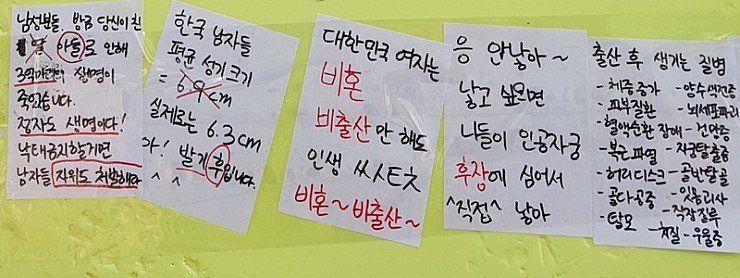 남성분들, 방금 당신이 친
딸 아들로 인해
3억마리의 생명이
죽었습니다.
정자도 생명이다!
낙태금지할거면
남자들 자위도 처벌해라
한국 남자들
평균 성기 크기
= 6.9cm
실제로는 6.3cm
아! 발기 후입니다.
^ ^
대한민국 여자는
비혼
비출산만 해도
인생 씹시트치
비혼~비출산~
응 안낳아~
낳고 싶으면
니들이 인공자궁
후장에 심어서
^직접^ 낳아
출산 후 생기는 질병
- 체중증가
- 양수색전증
- 피부질환
- 뇌세포파괴
- 혈액순환 장애
- 건망증
- 복근 파열
- 자궁탈출증
- 허리디스크
- 골반탈골
- 골다공증
- 잇몸괴사
- 탈모
- 직장질루
- 치질
- 우울증